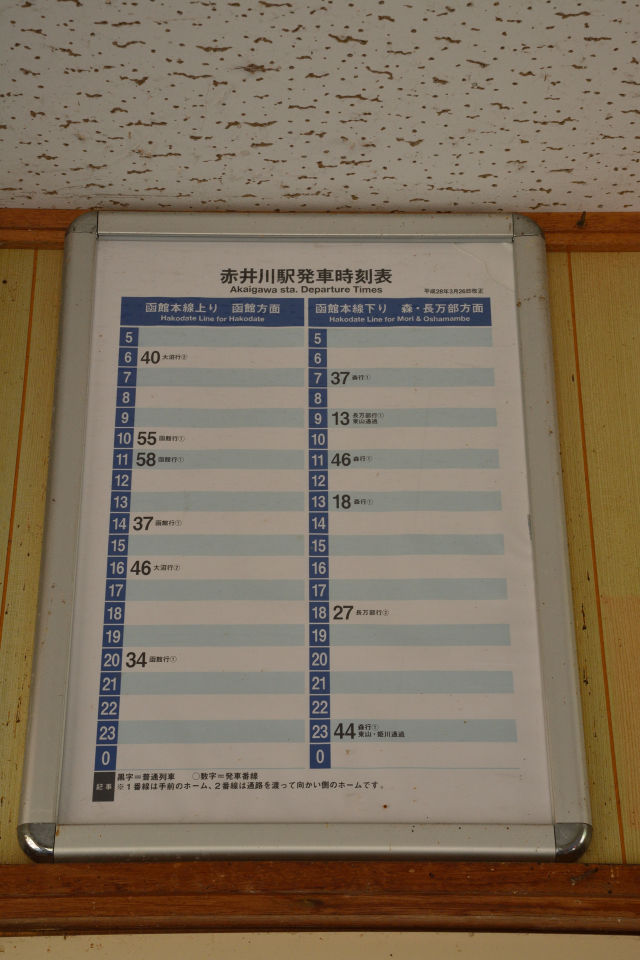 赤井川駅発車時刻表
Akaigawa sta. Departure Times
平成28年3月26日改正
函館本線上り 函館方面
Hakodate Line for Hakodate
5
6 40 大沼行②
7
8
9
10 55 函館行①
11 58 函館行①
12
13
14 37 函館行①
15
16 46 大沼行②
17
18
19
20 34 函館行①
21
22
23
0
函館本線下り 森・長万部方面
Hakodate Line for Mori & Oshamambe
5
6
7 37 森行①
8
9 13 長万部行①
東山通過
10
11 46 森行①
12
13 18 森行①
14
15
16
17
18 27 長万部行②
19
20
21
22
23 44 森行①
東山・姫川通過
0
記事
黒字=普通列車 ○数字=発車番線
※1番線は手前のホーム、2番線は通路を渡って向かい側のホームです。